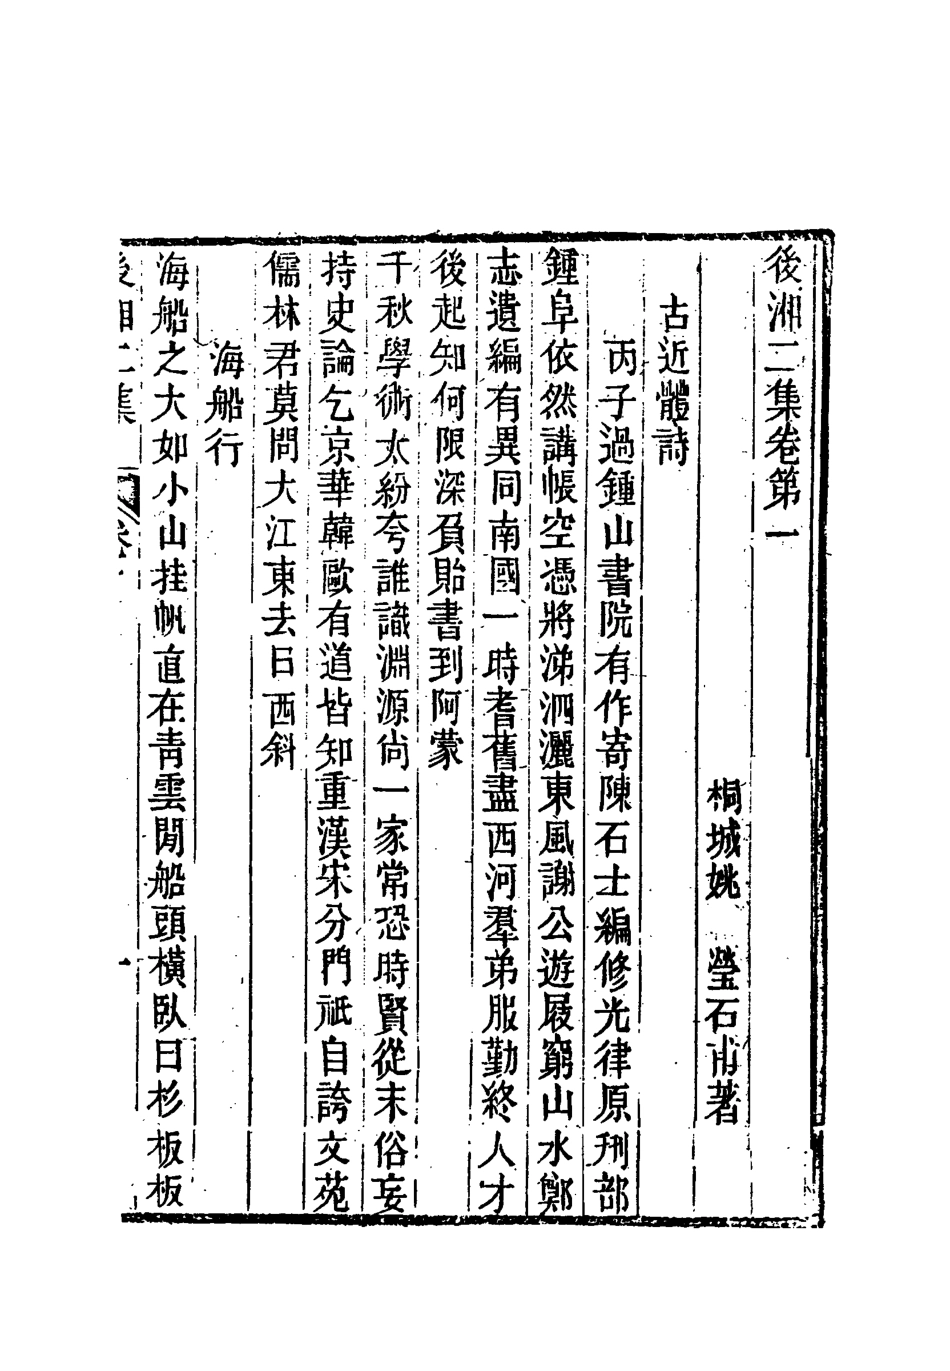 後湘二集卷第一
桐城姚　瑩石甫著
古近體詩
丙子過鍾山書院有作寄陳石士編修光律原刑部
鍾阜依然講帳空憑將涕泗灑東風謝公遊屐窮山水鄭
志遺編有異同南國一時耆舊盡西河羣弟服勤終人才
後起知何限深負貽書到阿蒙
千秋學術太紛夸誰識淵源尙一家常恐時賢從末俗妄
持史論乞京華韓歐有道皆知重漢宋分門祇自誇文苑
儒林君莫問大江東去日西斜
海船行
海船之大如小山挂帆直在靑雲閒船頭橫臥曰杉板板
後湘二集
卷一
一